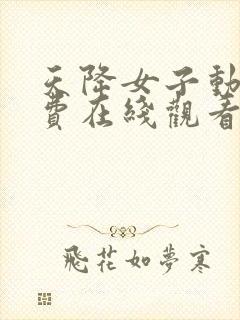 天降女子動
費在綫觀看
飛花如夢寒